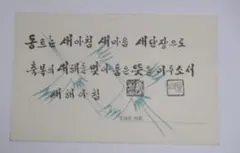 동트는 새아침 새마음 새단장으로
축복의 새해를 맞아 품은 뜻을 이루소서
새해아침